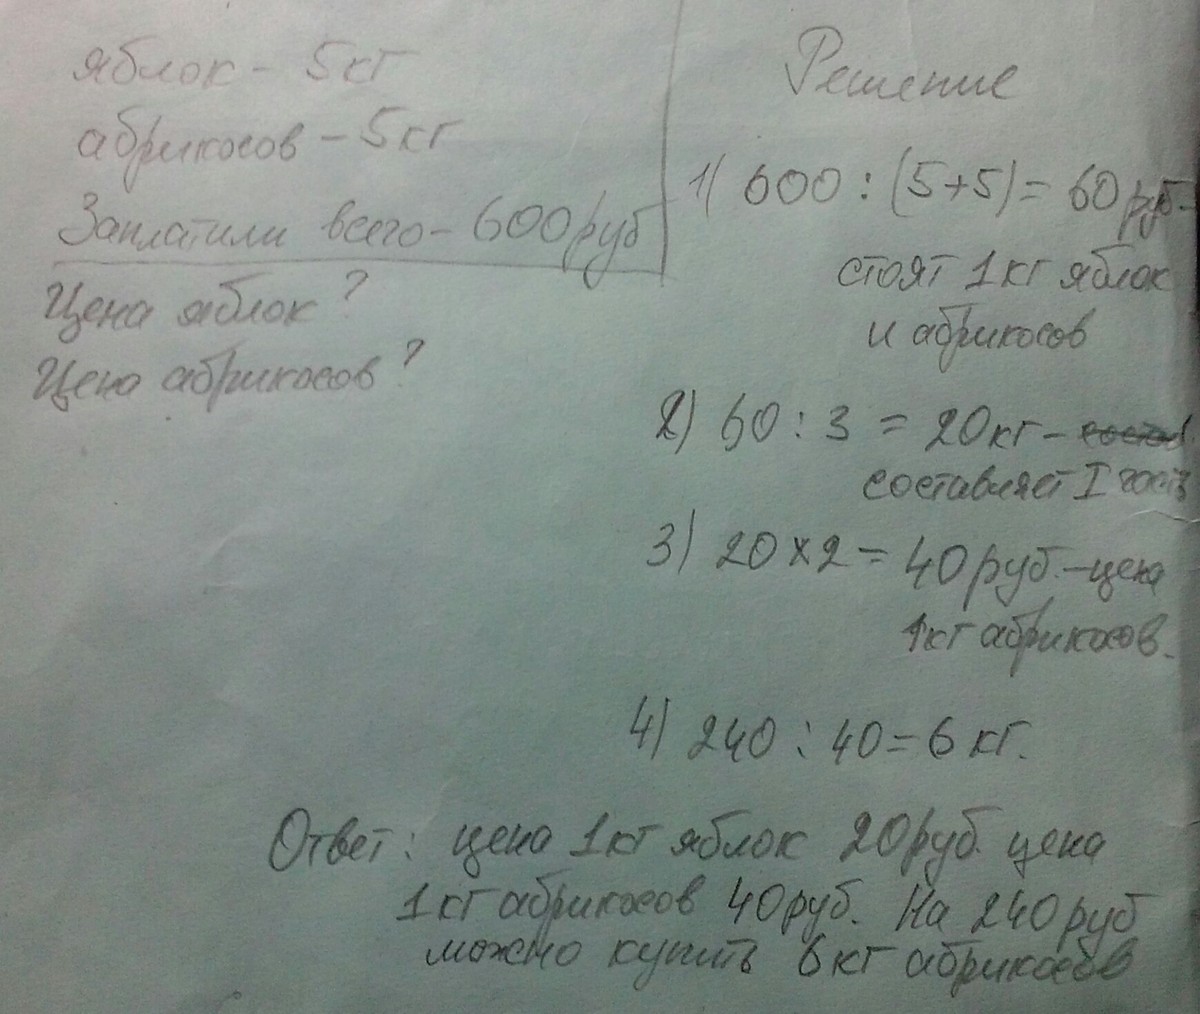 яблок - 5кг
абрикосов - 5кг
Заплатили всего - 600руб
Цена яблок ?
Цена абрикосов ?
Решение
1) 600 : (5+5) = 60руб-
стоят 1кг яблок
и абрикосов
2) 60 : 3 = 20кг -
составляет I часть
3) 20 × 2 = 40руб. - цена
1кг абрикосов.
4) 240 : 40 = 6 кг.
Ответ: цена 1кг яблок 20руб. цена
1кг абрикосов 40руб. На 240руб
можно купить 6кг абрикосов